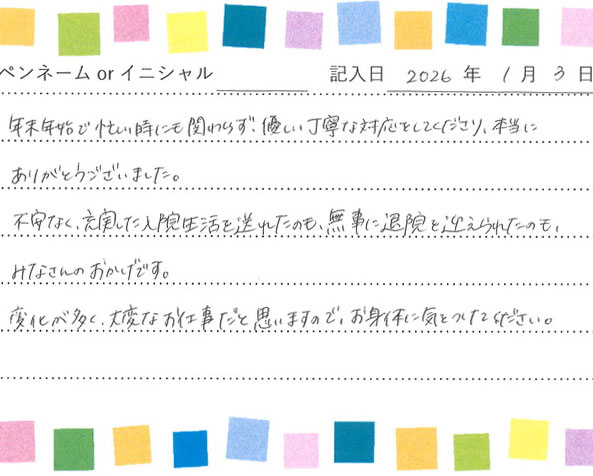 ペンネーム or イニシャル 記入日 2026 年 1 月 3 日
年末年始で忙しい時にも関わらず、優しい丁寧な対応をしてくださり、本当に
ありがとうございました。
不安なく、充実した入院生活を送れたのも、無事に退院を迎えられたのも、
みなさんのおかげです。
変化が多く、大変なお仕事だと思いますので、お身体に気をつけてください。